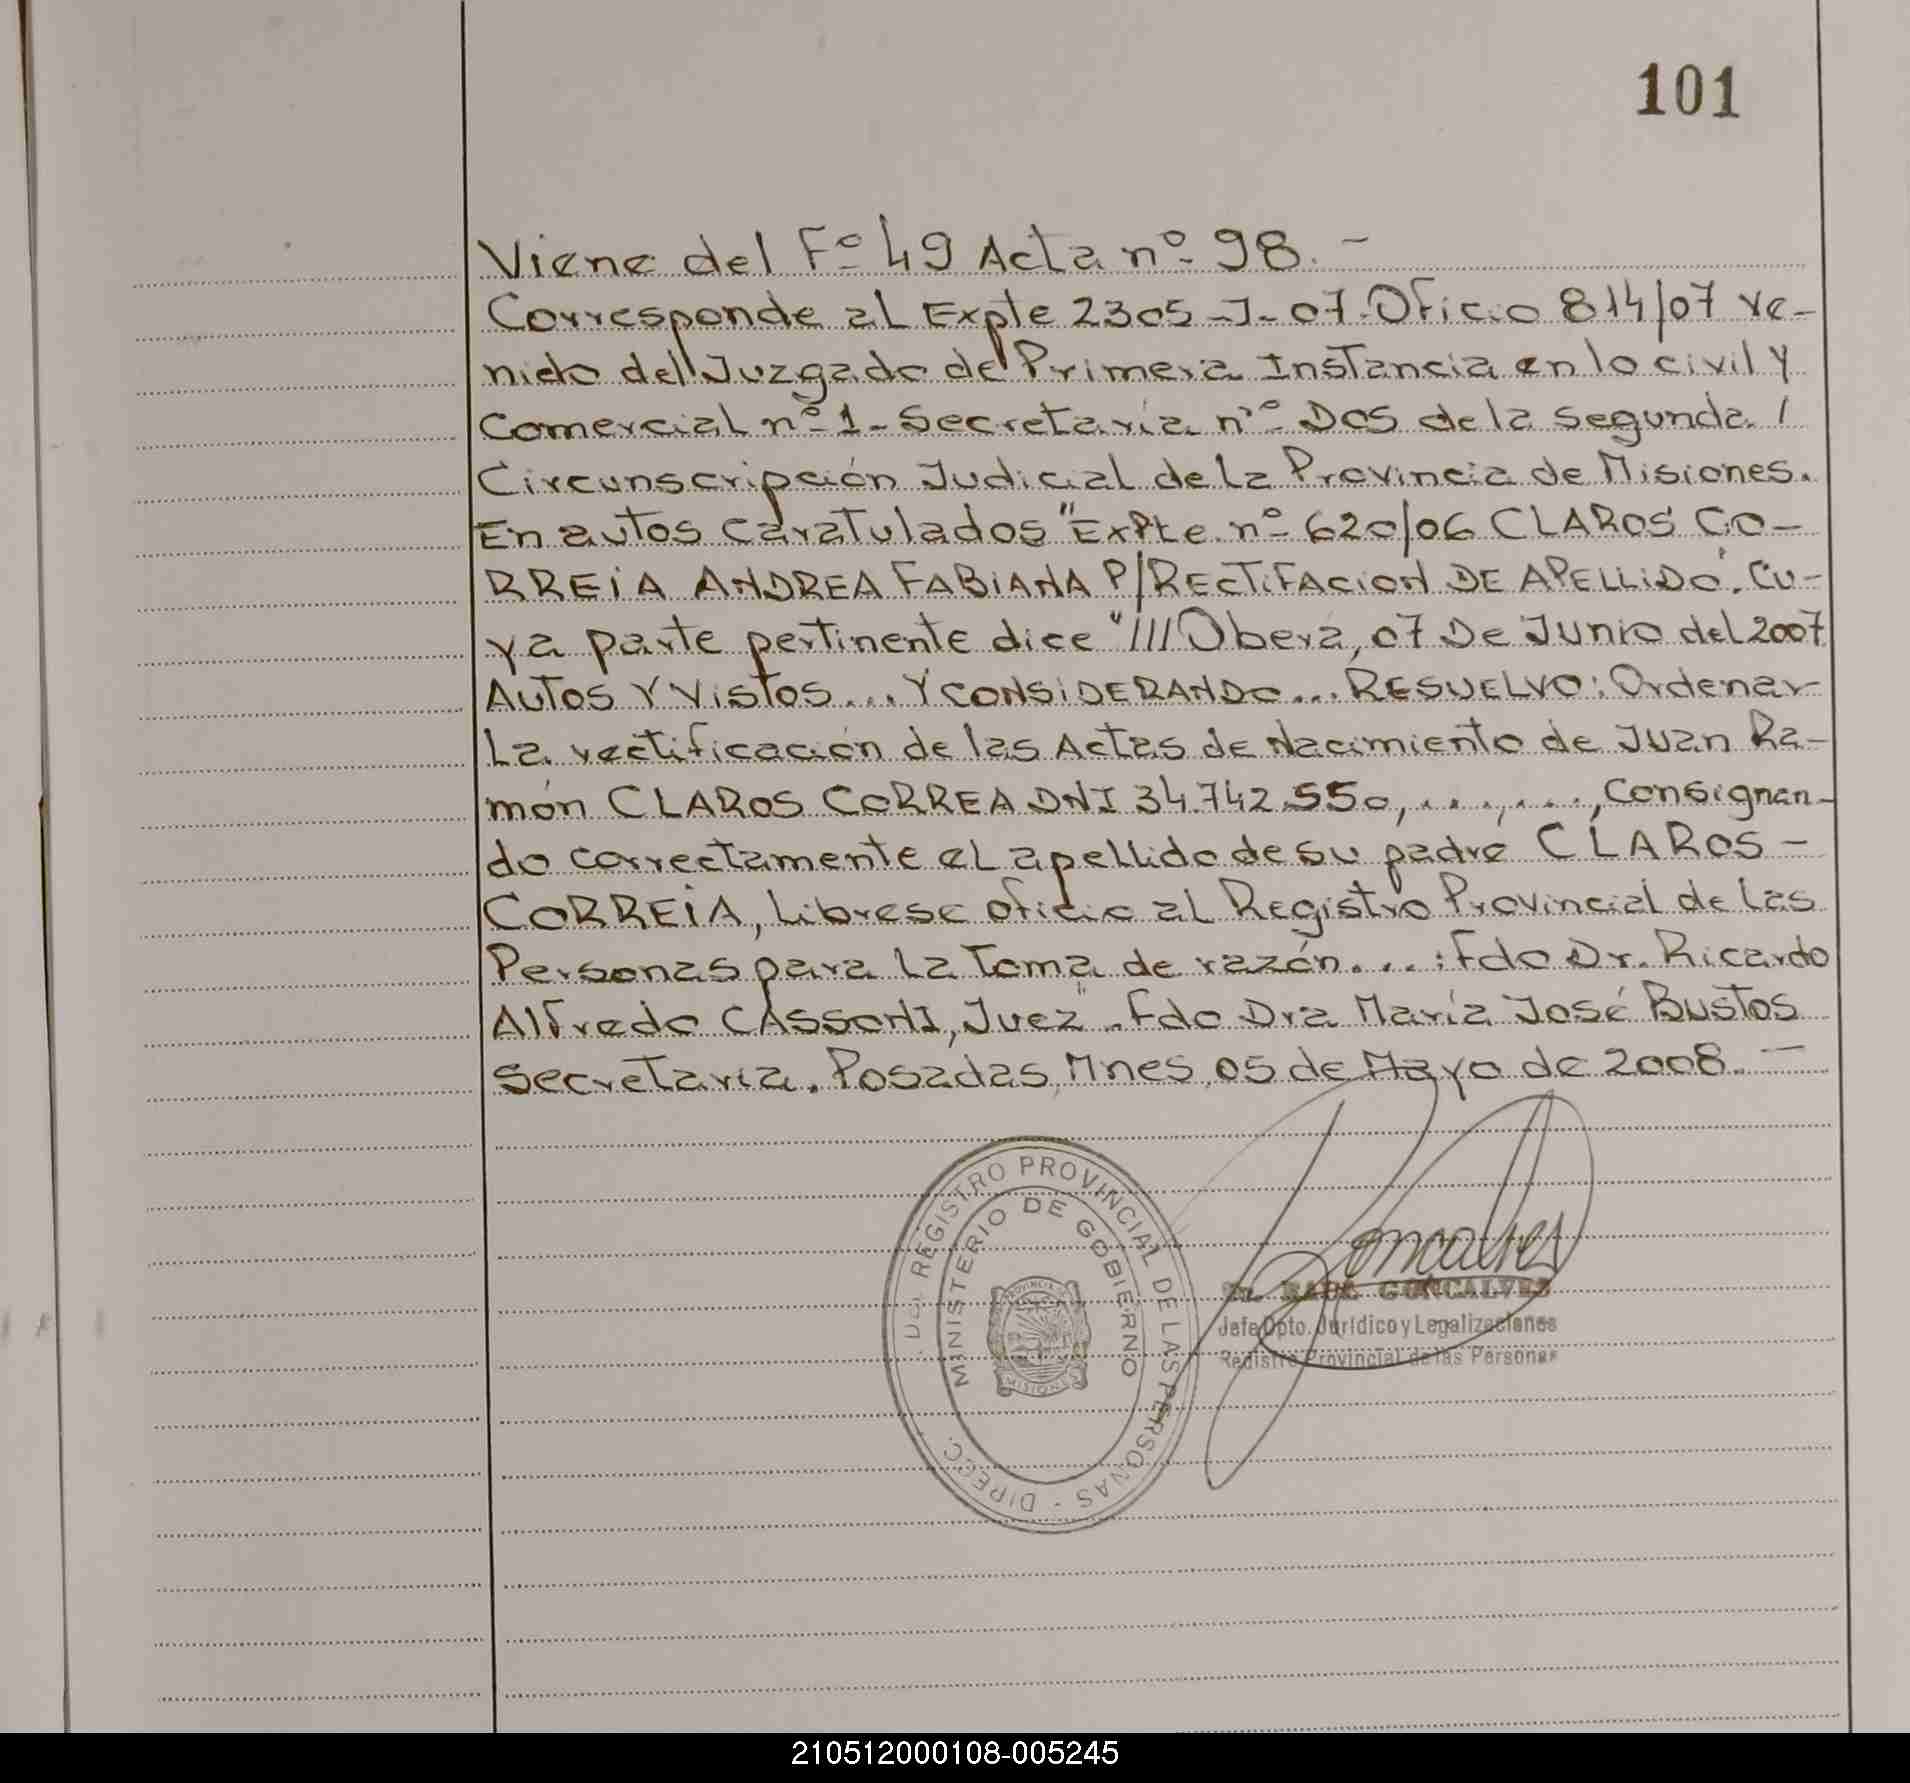 101
Viene del Fº 49 Acta nº 98.-
Corresponde al Expte 2305-J-07. Oficio 814/07 ve-
nido del Juzgado de Primera Instancia en lo civil y
Comercial nº 1- Secretaría nº Dos de la segunda /
Circunscripción Judicial de la Provincia de Misiones.
En autos caratulados "Expte. nº 620/06 CLAROS CO-
RREIA ANDREA FABIANA P/RECTIFACION DE APELLIDO". Cu-
ya parte pertinente dice "///Oberá, 07 De Junio del 2007
AUTOS Y VISTOS... Y CONSIDERANDO... RESUELVO: Ordenar
La rectificación de las Actas de Nacimiento de Juan Ra-
món CLAROS CORREA DNI 34.742.550, ..., ..., Consignan-
do correctamente el apellido de su padre CLAROS -
CORREIA, Librese oficio al Registro Provincial de las
Personas para La Toma de razón....: Fdo Dr. Ricardo
Alfredo CASSONI, Juez". Fdo Dra María José Bustos
Secretaria. Posadas, Mnes, 05 de Mayo de 2008.-
DIRECC. DEL REGISTRO PROVINCIAL DE LAS PERSONAS -
MINISTERIO DE GOBIERNO
PROVINCIA
MISIONES
Goncalves
GONCALVES
Jefe Dpto. Jurídico y Legalizaciones
Registro Provincial de las Personas
210512000108-005245